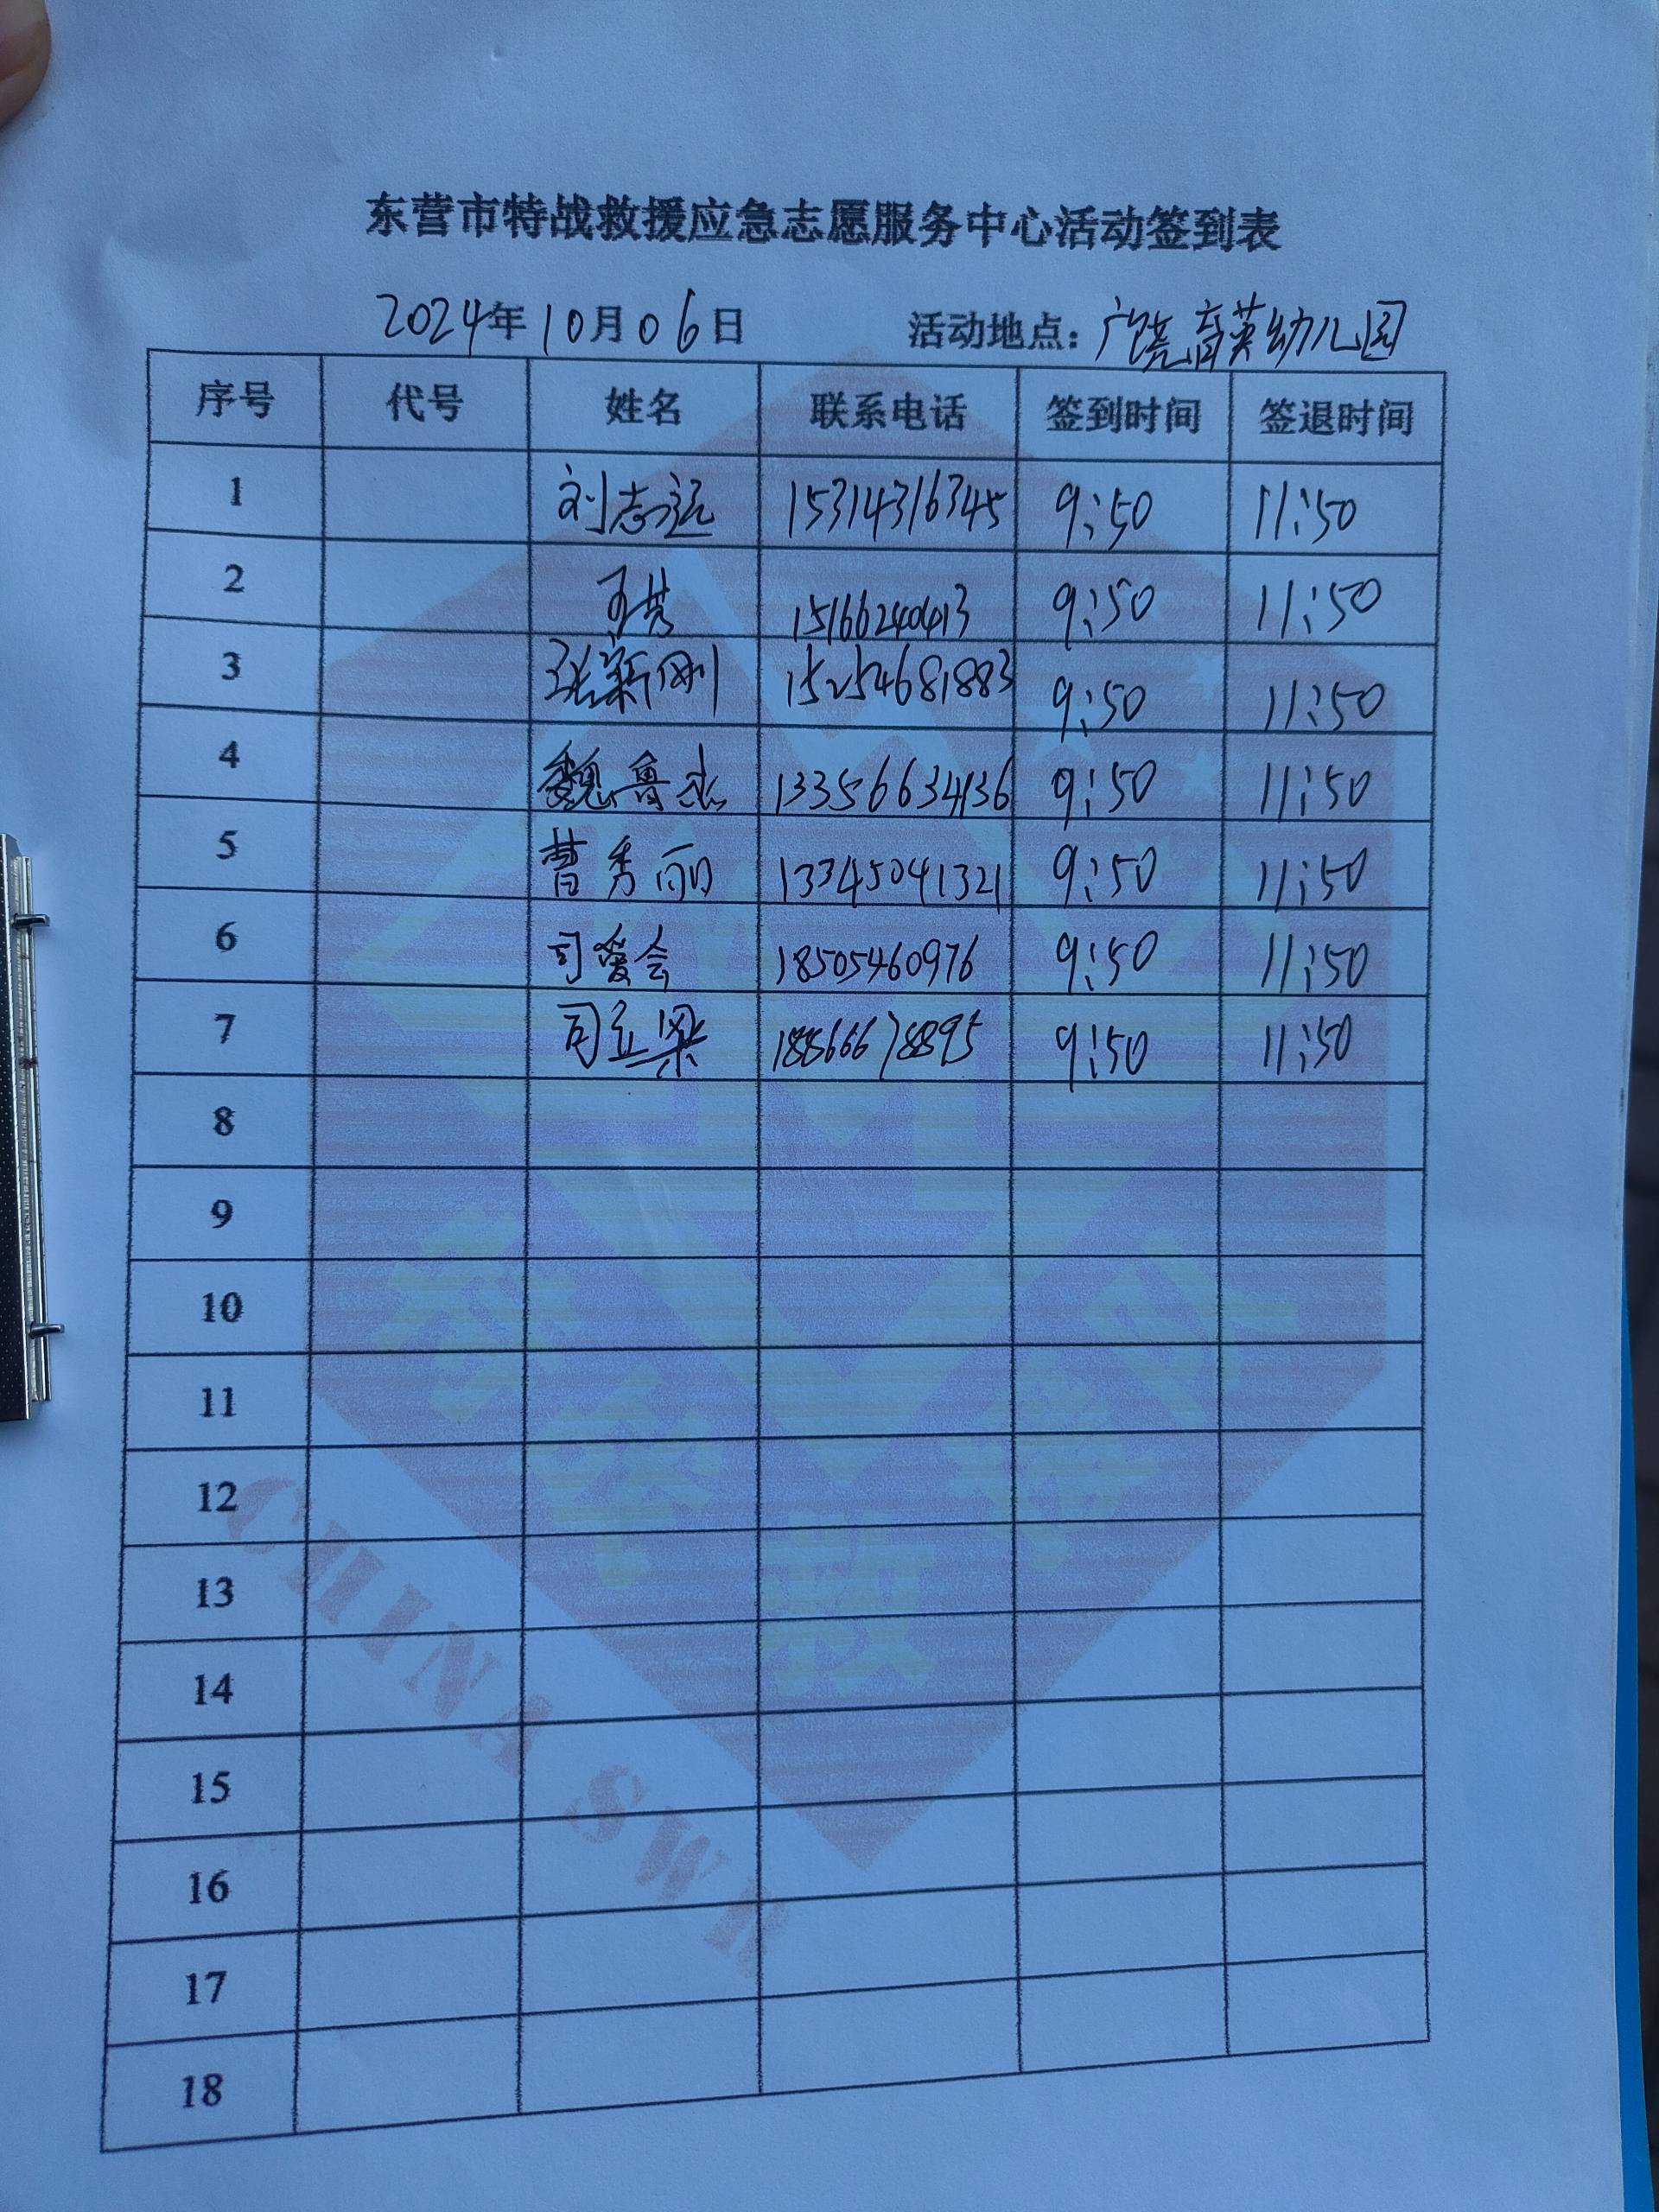 东营市特战救援应急志愿服务中心活动签到表
2024年10月06日 活动地点：广饶育英幼儿园
序号 代号 姓名 联系电话 签到时间 签退时间
1 刘志远 15314316345 9:50 11:50
2 15166240413 9:50 11:50
3 张新刚 15254681883 9:50 11:50
4 魏鲁杰 13356634136 9:50 11:50
5 曹秀丽 13345041321 9:50 11:50
6 司爱会 18505460976 9:50 11:50
7 司立梁 18866678895 9:50 11:50
8
9
10
11
12
13
14
15
16
17
18
CHINA SWR